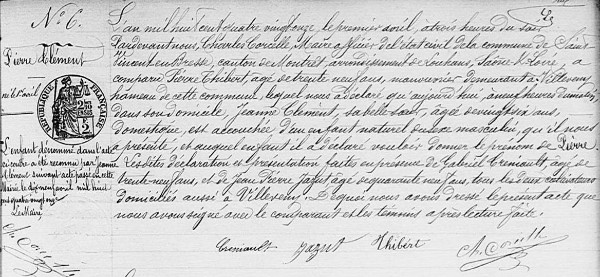 N° 6.
Pierre Clément
né le 1er avril
RÉPUBLIQUE FRANÇAISE
L'an mil huit cent quatre vingt onze, le premier avril, à trois heures du soir
Pardevant nous, Charles Corcelle, Maire officier de l'état civil de la commune de Saint
Vincent en Bresse, canton de Montret, arrondissement de Louhans, Saône & Loire, a
comparu Pierre Thibert, âgé de trente neuf ans, manouvrier demeurant à Villevesnu
hameau de cette commune, lequel nous a déclaré qu'aujourd'hui, à neuf heures du matin,
dans son domicile, Jeanne Clément, sa belle sœur, âgée de vingt six ans,
domestique, est accouchée d'un enfant naturel de sexe masculin, qu'il nous
a présenté, et auquel enfant il a déclaré vouloir donner le prénom de Pierre
Les dites déclaration et présentation faites en présence de Gabriel Cremault, âgé de
trente neuf ans, et de Jean Pierre Jazut âgé de quarante neuf ans, tous les deux cultivateurs
domiciliés aussi à Villevesnu. De quoi nous avons dressé le présent acte que
nous avons signé avec le comparant et les témoins après lecture faite.
L'enfant dénommé dans l'acte
ci contre a été reconnu par Jeanne
Clément suivant acte passé en cette
Mairie le avril mil huit
cent quatre vingt onze
Le Maire
Cremault Jazut Thibert